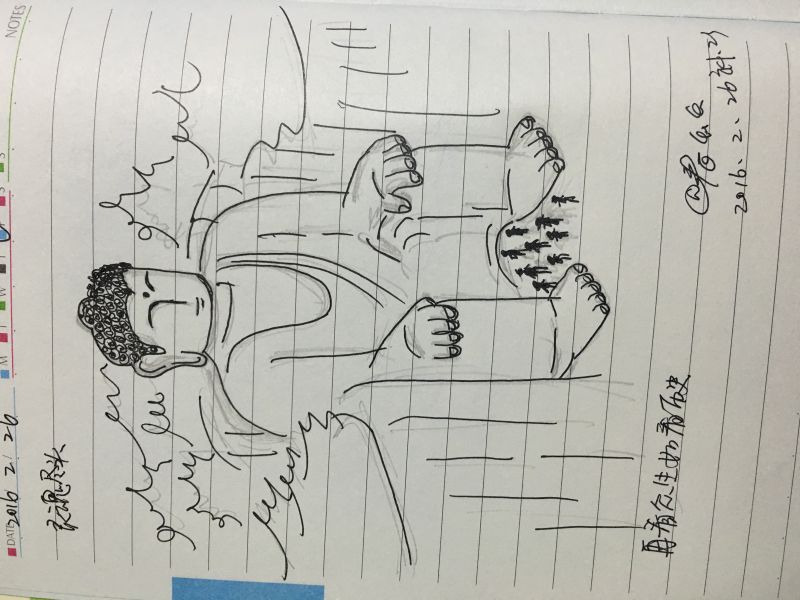 DATE 2016 2/ 26 M T W T F S S NOTES
灵魂尽头
再看众生如看历史
2016.2.26